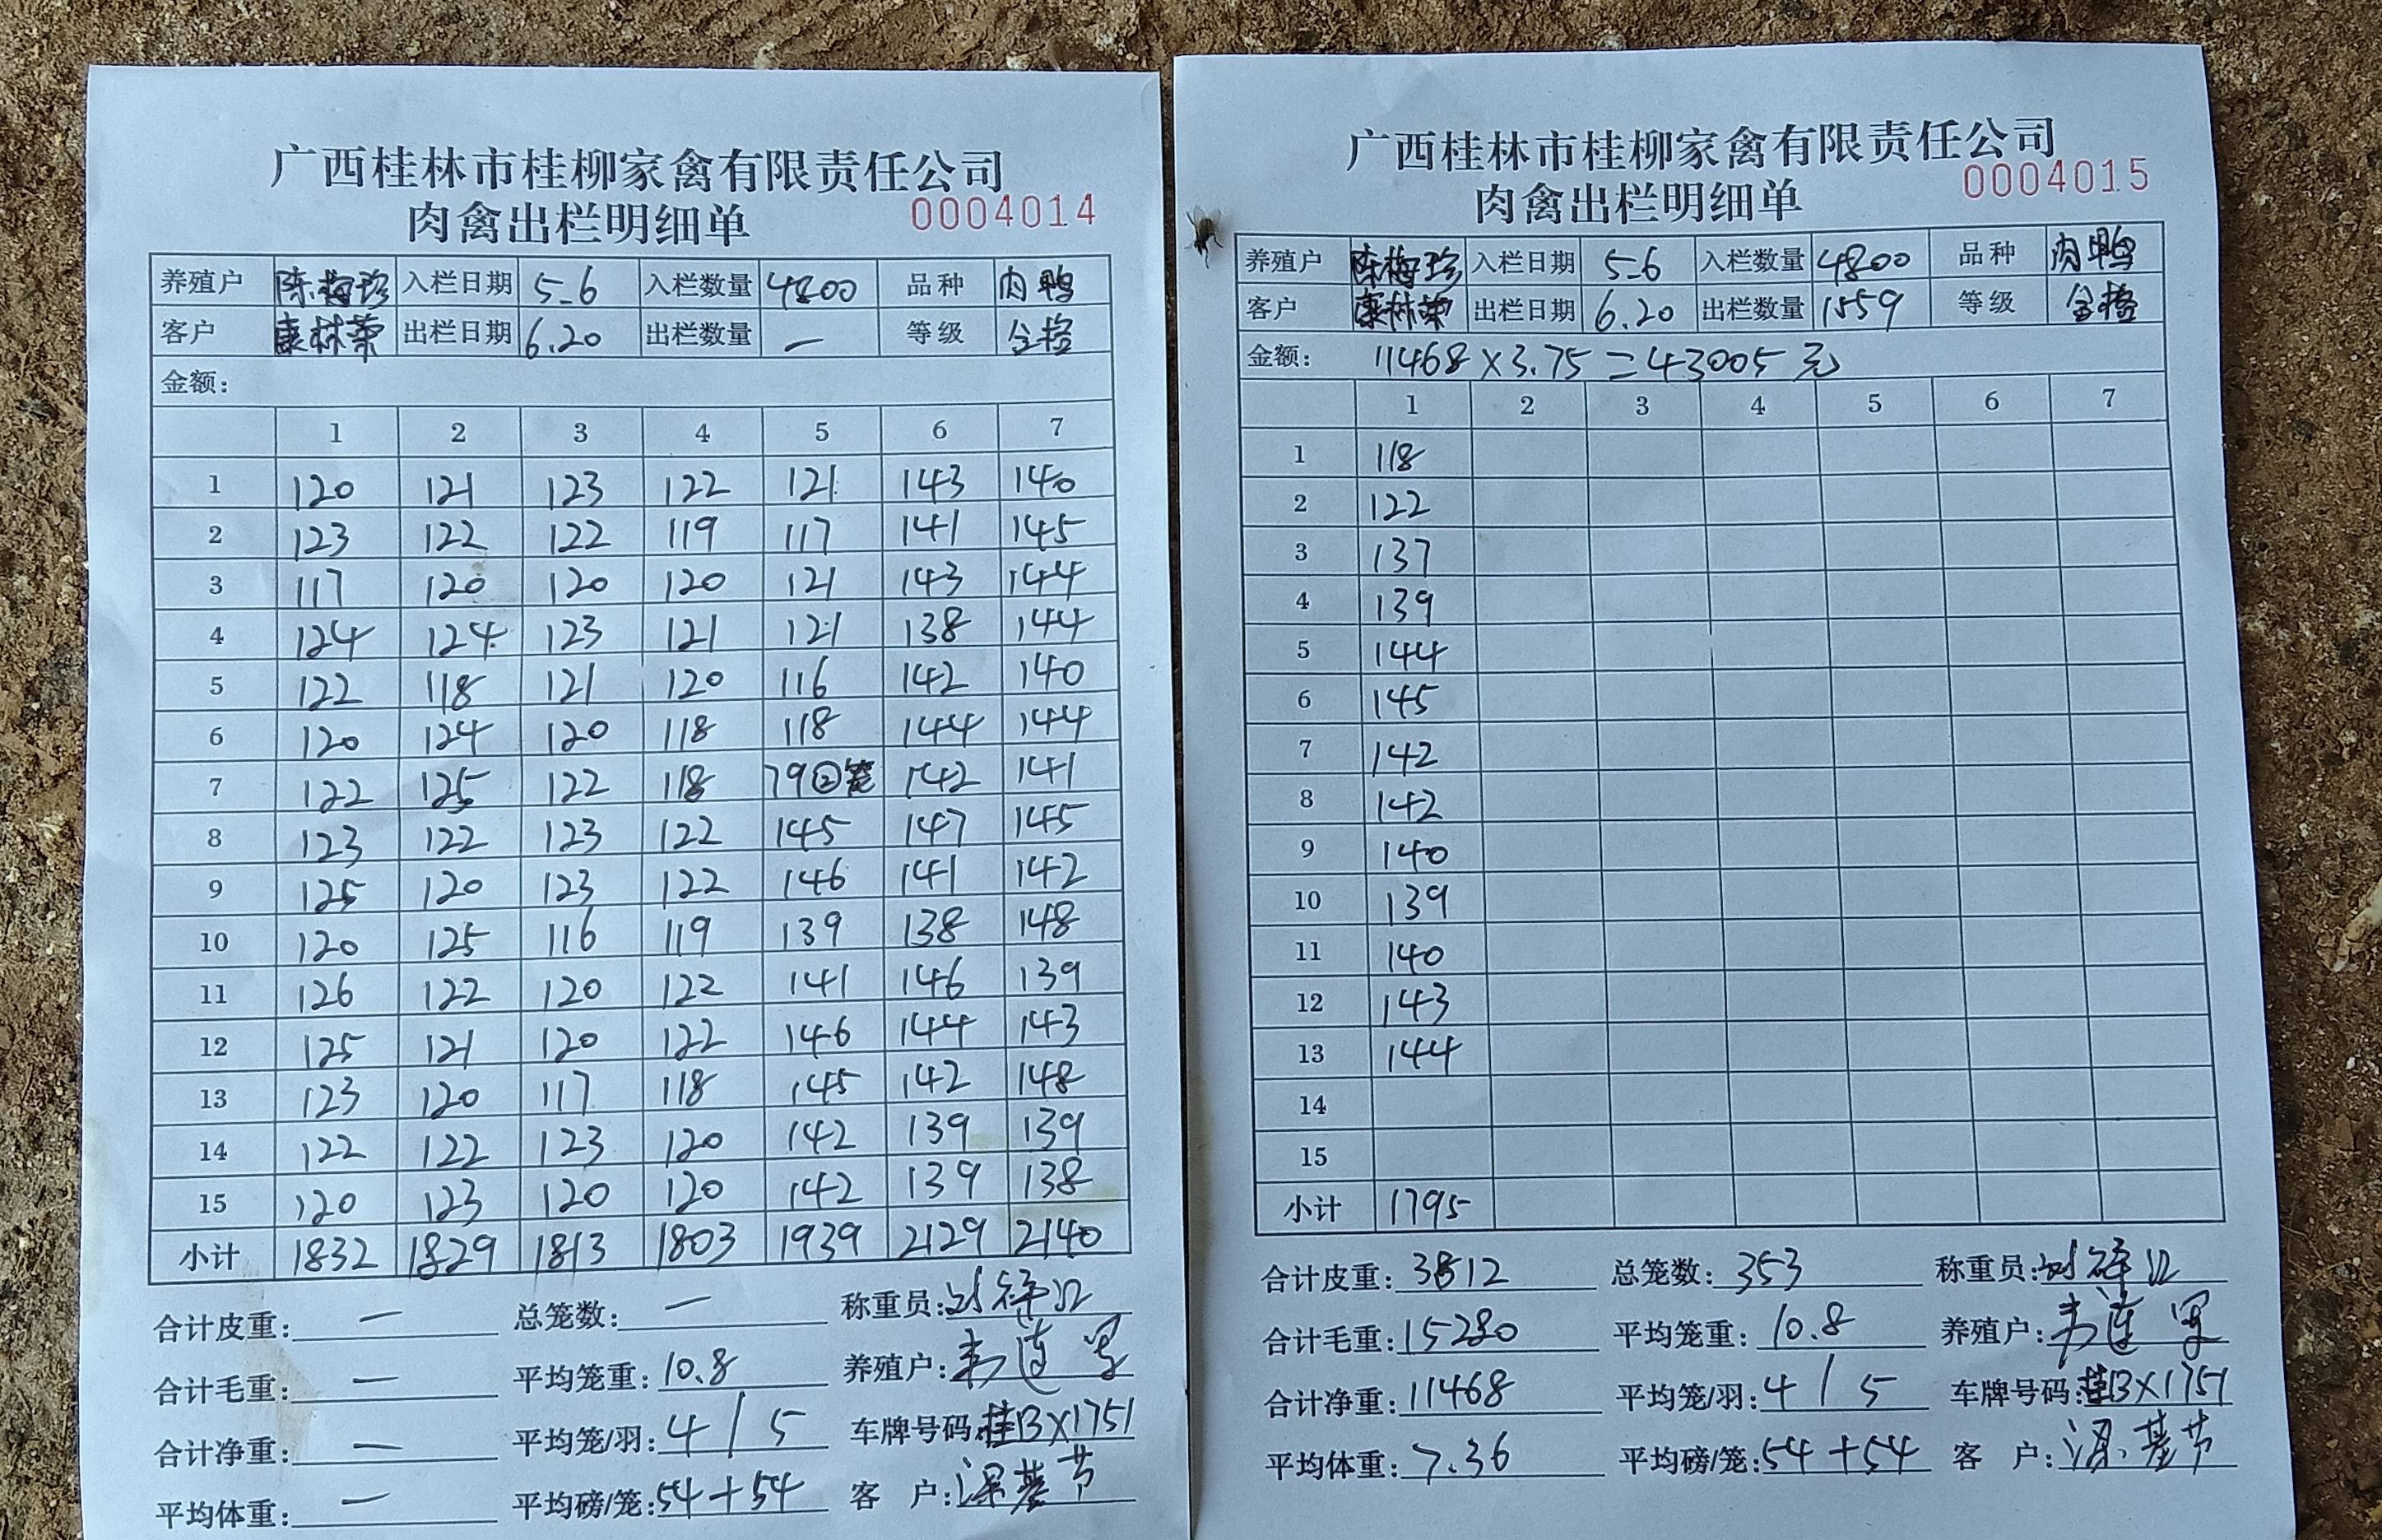 广西桂林市桂柳家禽有限责任公司
肉禽出栏明细单 0004014
养殖户 陈梅珍 入栏日期 5-6 入栏数量 4800 品种 肉鸭
客户 康林荣 出栏日期 6.20 出栏数量 — 等级 合格
金额:
1 2 3 4 5 6 7
1 120 121 123 122 121 143 140
2 123 122 122 119 117 141 145
3 117 120 120 120 121 143 144
4 124 124 123 121 121 138 144
5 122 118 121 120 116 142 140
6 120 124 120 118 118 144 144
7 122 125 122 118 79②笼 142 141
8 123 122 123 122 145 147 145
9 125 120 123 122 146 141 142
10 120 125 116 119 139 138 148
11 126 122 120 122 141 146 139
12 125 121 120 122 146 144 143
13 123 120 117 118 145 142 148
14 122 122 123 120 142 139 139
15 120 123 120 120 142 139 138
小计 1832 1829 1813 1803 1939 2129 2140
合计皮重: — 总笼数: — 称重员:
合计毛重: — 平均笼重: 10.8 养殖户:
合计净重: — 平均笼/羽: 4 / 5 车牌号码: 桂BX1751
平均体重: — 平均磅/笼: 54+54 客 户:
广西桂林市桂柳家禽有限责任公司
肉禽出栏明细单 0004015
养殖户 陈梅珍 入栏日期 5-6 入栏数量 4800 品种 肉鸭
客户 康林荣 出栏日期 6.20 出栏数量 1559 等级 合格
金额: 11468×3.75=43005元
1 2 3 4 5 6 7
1 118
2 122
3 137
4 139
5 144
6 145
7 142
8 142
9 140
10 139
11 140
12 143
13 144
14
15
小计 1795
合计皮重: 3812 总笼数: 353 称重员:
合计毛重: 15280 平均笼重: 10.8 养殖户:
合计净重: 11468 平均笼/羽: 4 / 5 车牌号码: 桂BX1751
平均体重: 7.36 平均磅/笼: 54+54 客 户: